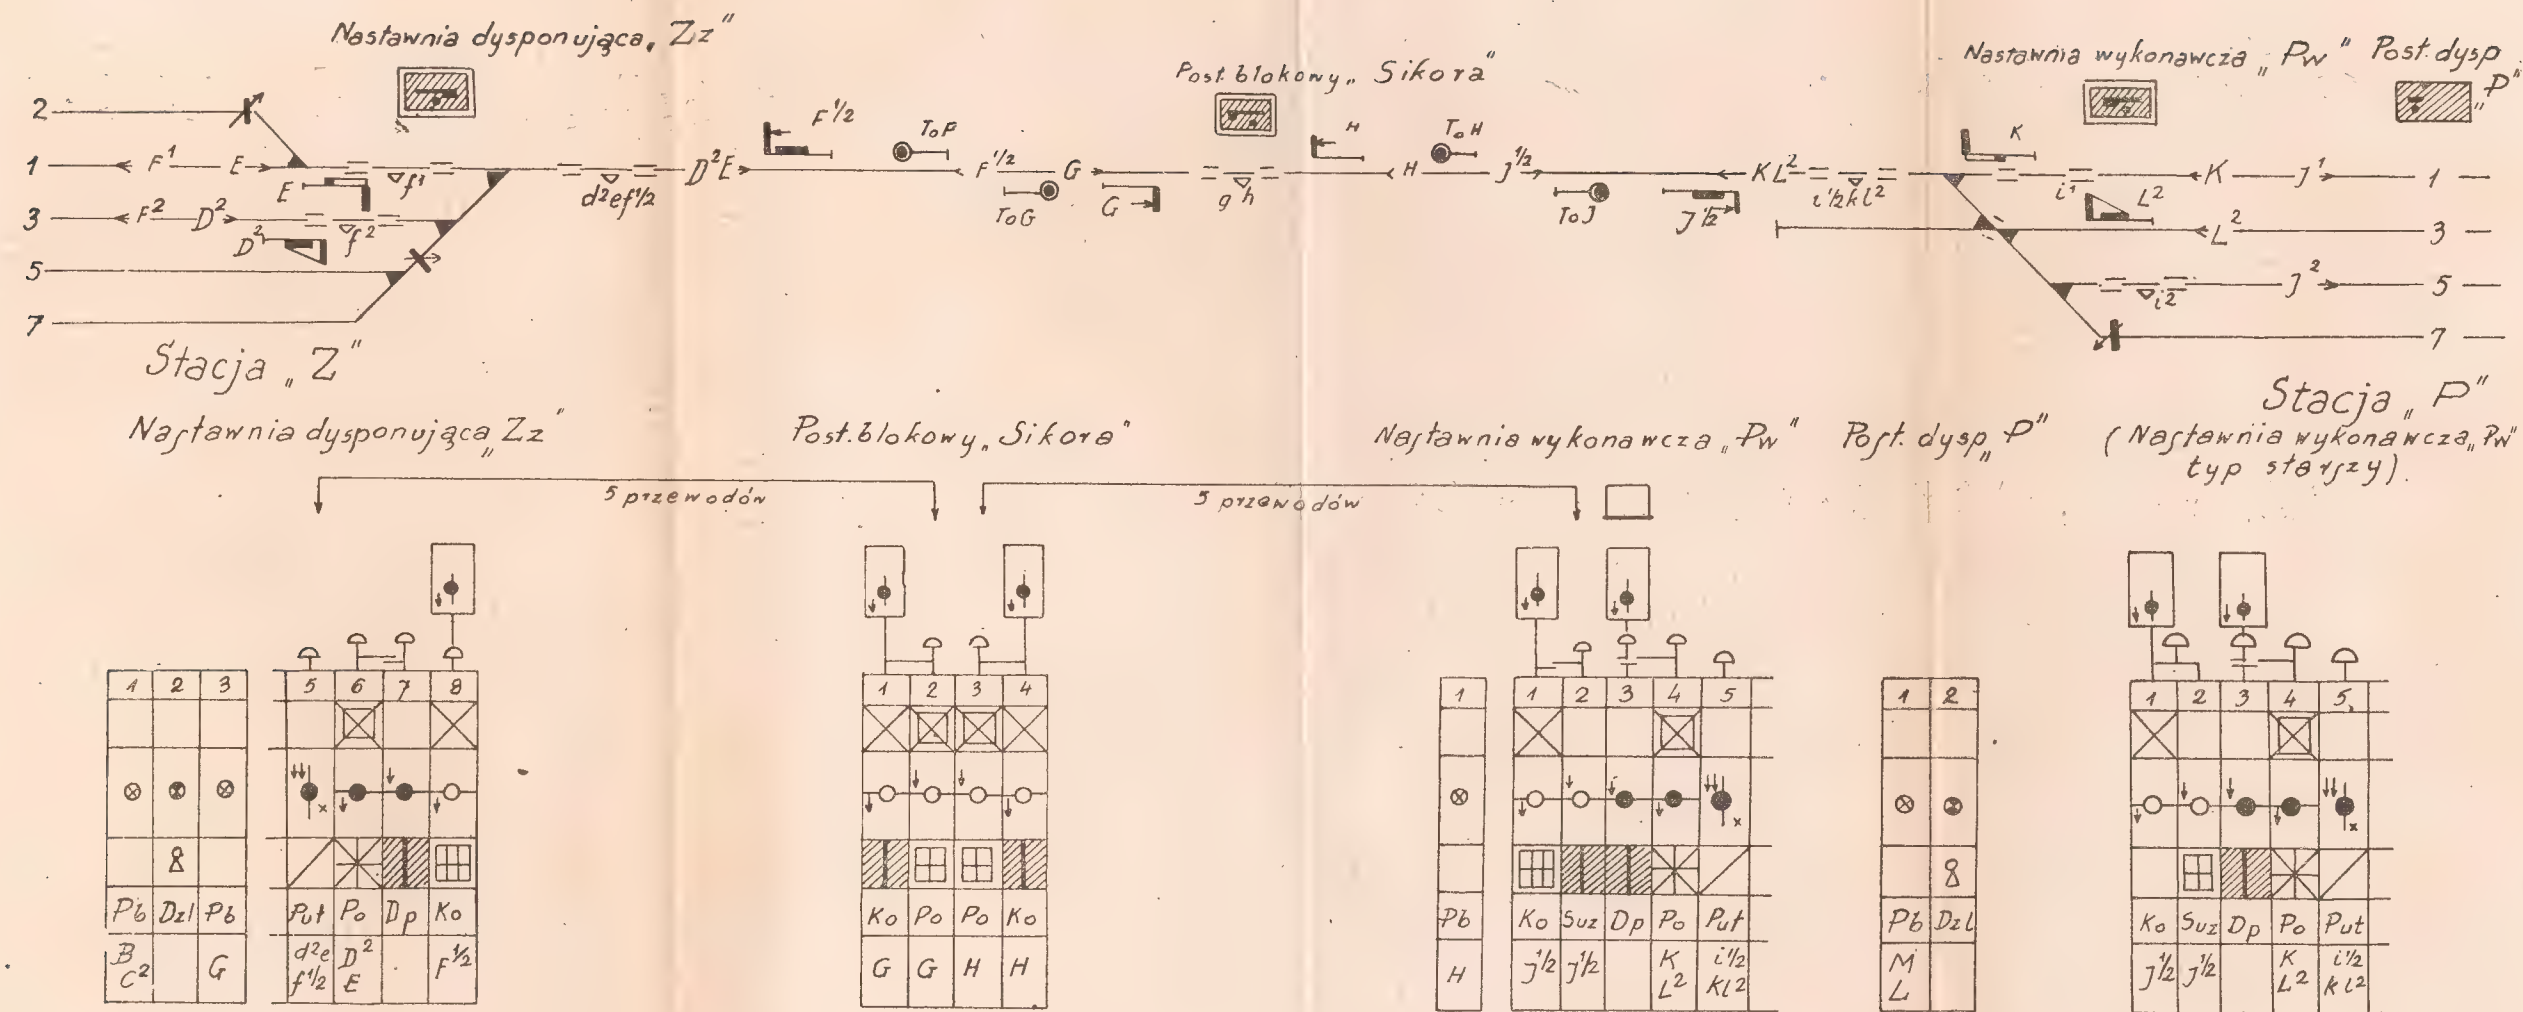 Nastawnia dysponująca „Zz"
Post. blokowy „Sikora"
Nastawnia wykonawcza „Pw"
Post. dysp „P"
2
1 F¹ E E f¹ d²ef½ D²E F½ ToF F½ G
ToG G gh H H ToH J½
ToJ J½ KL² i½kl² K i¹ L² K J¹ 1
3 F² D² D² f²
L² 3
5
i² J² 5
7
7
Stacja „Z"
Stacja „P"
Nastawnia dysponująca „Zz"
Post. blokowy „Sikora"
Nastawnia wykonawcza „Pw"
Post. dysp „P"
(Nastawnia wykonawcza „Pw"
typ starszy)
5 przewodów
5 przewodów
1 2 3
Pb Dzl Pb
B C² G
5 6 7 8
x
Put Po Dp Ko
d²e f½ D² E F½
1 2 3 4
Ko Po Po Ko
G G H H
1
Pb
H
1 2 3 4 5
x
Ko Suz Dp Po Put
J½ J½ K L² i½ kl²
1 2
Pb Dzl
M L
1 2 3 4 5
x
Ko Suz Dp Po Put
J½ J½ K L² i½ kl²